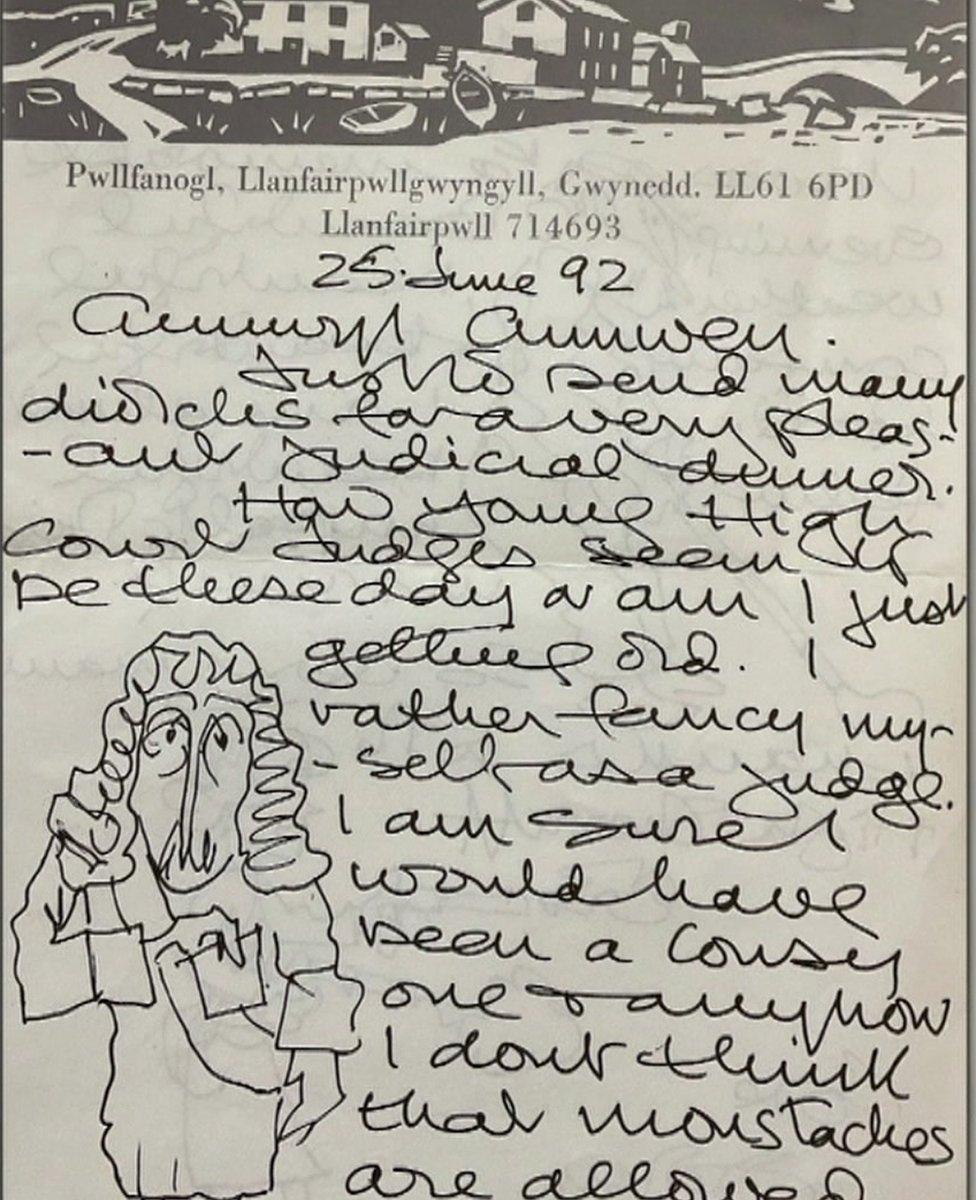 Pwllfanogl, Llanfairpwllgwyngyll, Gwynedd. LL61 6PD
Llanfairpwll 714693
25. June 92
Annwyl Annwen.
Just to send many
diolchs for a very pleas-
-ant judicial dinner.
How young High
Court Judges seem to
be these day or am I just
getting old. I
rather fancy my-
-self as a judge.
I am sure I
would have
been a
one & anyhow
I dont think
that moustaches
are allowed